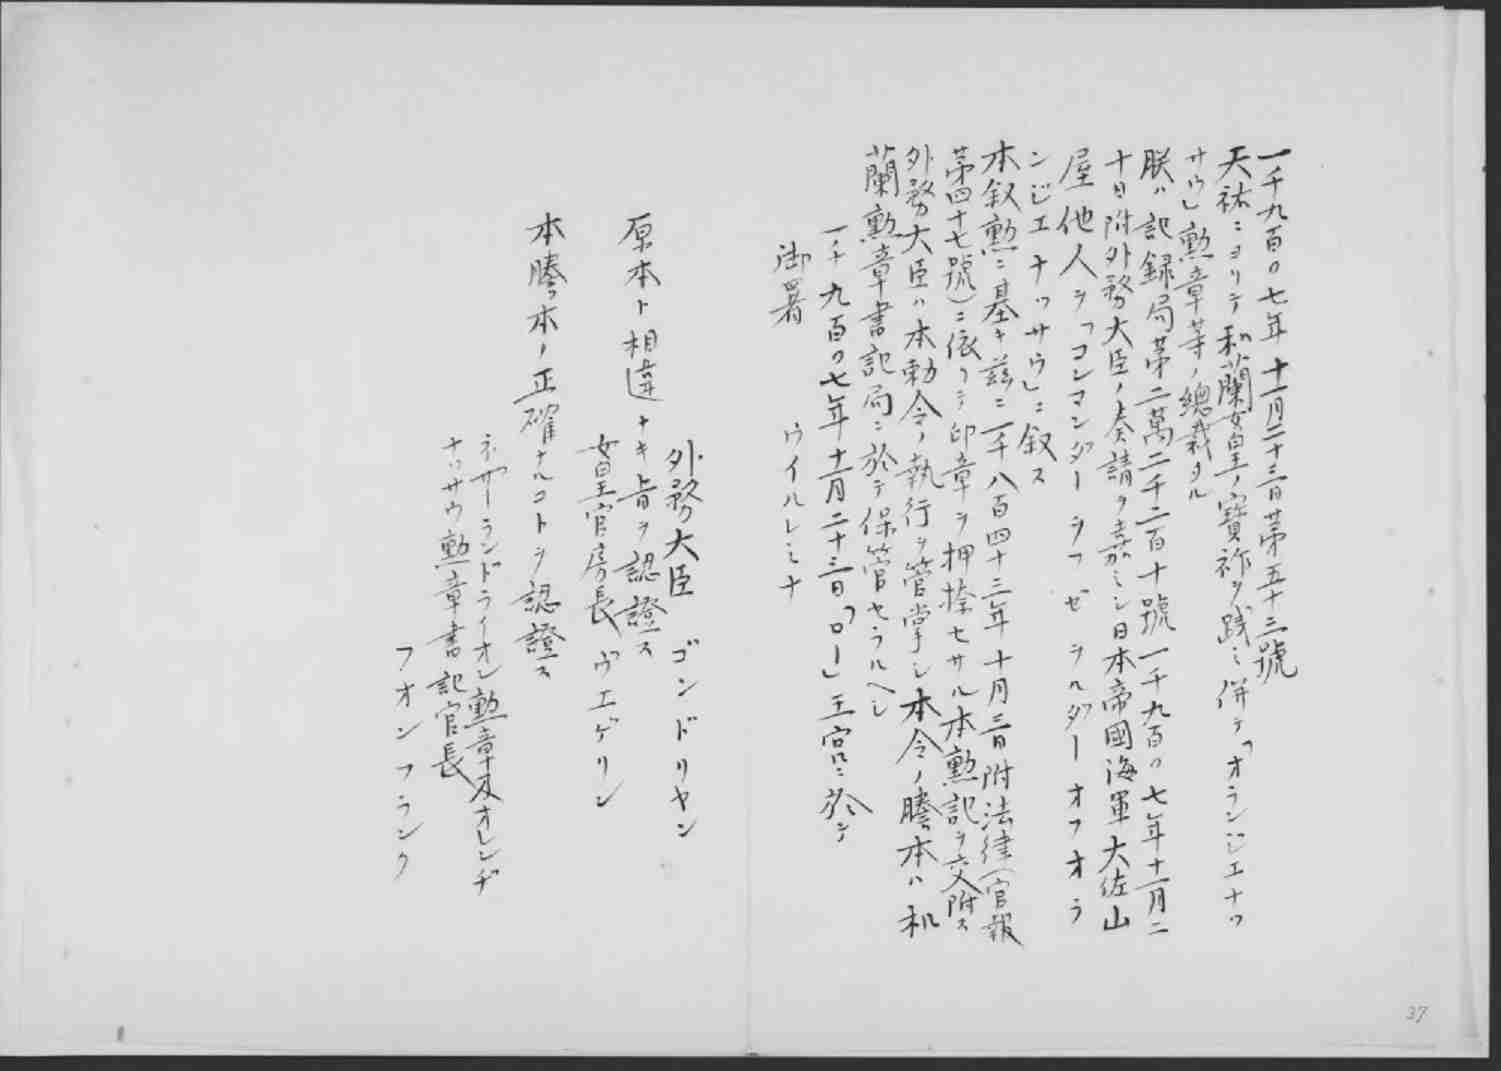 一千九百〇七年十一月二十三日第五十三號
天祐ニヨリテ和蘭女皇ノ寶祚ヲ践ミ併テ「オランジエナッ
サウ」勲章等ノ總裁タル
朕ハ記録局第二萬二千二百十號一千九百〇七年十一月二
十日附外務大臣ノ奏請ヲ嘉ミシ日本帝國海軍大佐山
屋他人ヲ「コンマンダー ヲフ ゼ ヲルダー オフ オラ
ンジエナッサウ」ニ叙ス
本叙勲ニ基キ茲ニ一千八百四十三年十月三日附法律(官報
第四十七號)ニ依リテ印章ヲ押捺セサル本勲記ヲ交附ス
外務大臣ハ本勅令ノ執行ヲ管掌シ本令ノ謄本ハ和
蘭勲章書記局ニ於テ保管セラルヘシ
一千九百〇七年十一月二十三日「ロー」王宮ニ於テ
御署 ウイルレミナ
外務大臣 ゴンドリヤン
原本ト相違ナキ旨ヲ認證ス
女皇官房長 ヴエゲリン
本謄本ノ正確ナルコトヲ認證ス
ネザーランドライオン勲章及オレンヂ
ナッサウ勲章書記官長
フオンフランク
37